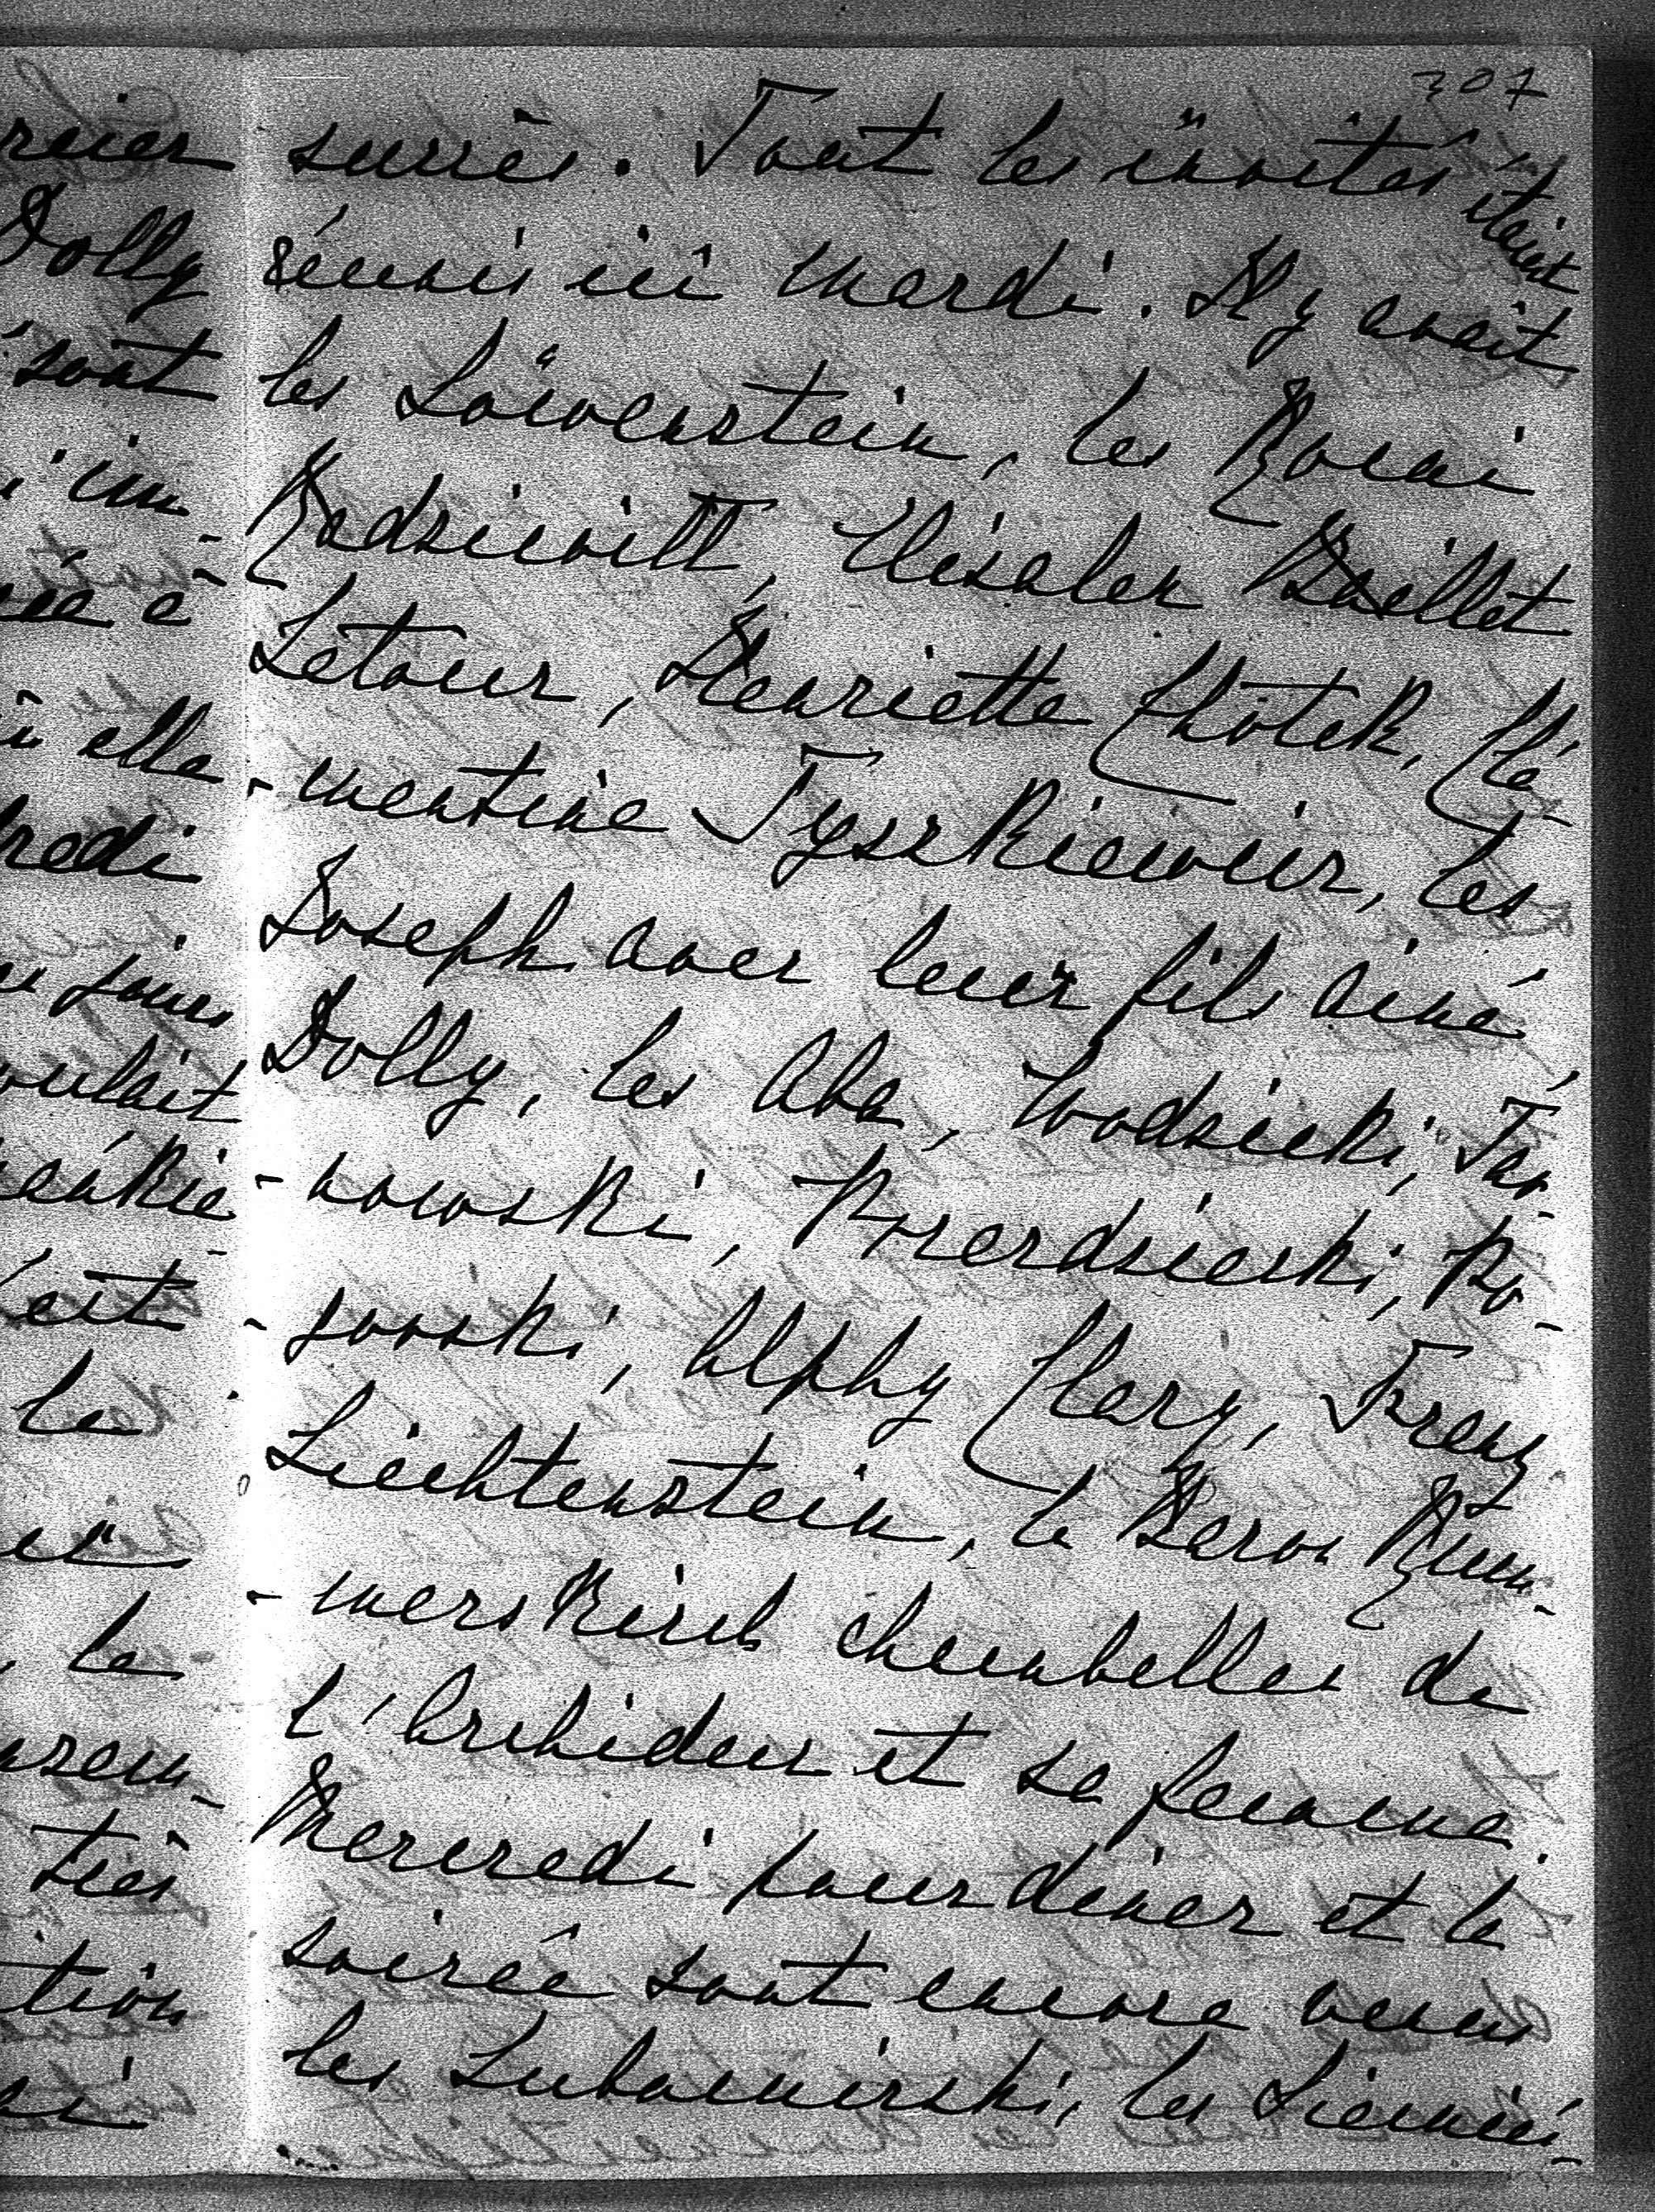 307
succès. Tout les invités étaient
réunis ici mardi. Il y avait
les Löwenstein, les Romi
Radziwill, Baillet
Latour, Henriette Chotek, Clé-
-mentine Tyszkiewicz, les
Joseph avec leur fils ainé,
Dolly, les Aba, Wodzicki, Tar-
-nowski, Przezdziecki, Po-
-gorski, Alphy Clary, Franz
Liechtenstein, le Baron Rum-
-merskirch chambellan de
l'Archiduc et sa femme.
Mercredi pour dîner et la
soirée sont encore venus
les Lubomirski, les Siemie-
reier
Dolly
sont
im-
elle
redi
jours
oulait
eit
le
la
rem-
très
tion